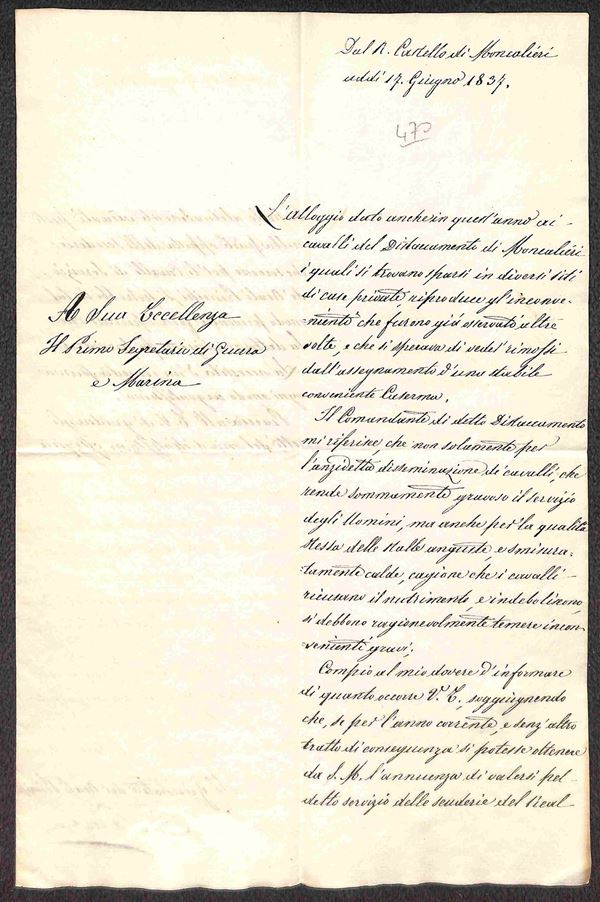 Dal R. Castello di Moncalieri
addi 17. Giugno 1837.
470
L'alloggio dato anche in quest'anno ai
cavalli del Distaccamento di Moncalieri
i quali si trovano sparsi in diversi siti
di case private riproduce gl'inconve-
nienti che furono già osservati altre
volte, e che si sperava di veder rimossi
dall'assegnamento d'una stabile
conveniente Caserma.
A Sua Eccellenza
Il Primo Segretario di Guerra
e Marina
Il Comandante di detto Distaccamento
mi riferisce che non solamente per
l'anzidetta disseminazione di cavalli, che
rende sommamente gravoso il servizio
degli Uomini, ma anche per la qualità
stessa delle stalle anguste, e smisura-
tamente calde, cagione che i cavalli
ricusano il nutrimento, e indeboliscono,
si debbono ragionevolmente temere incon-
venienti gravi.
Compio al mio dovere d'informare
di quanto occorre V. E., soggiugnendo
che, se per l'anno corrente, e senz'altro
tratto di conseguenza si potesse ottenere
da S. M. l'annuenza di valersi pel
detto servizio delle scuderie del Real